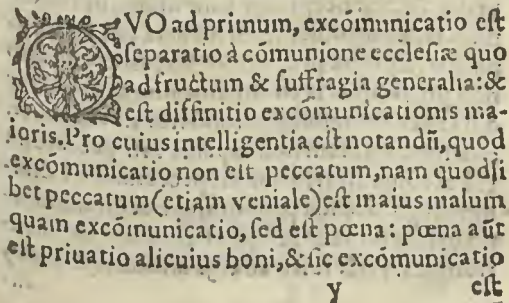 QVO ad primum, excōmunicatio eſt
ſeparatio à cōmunione eccleſiæ quo
ad fructum & ſuffragia generalia: &
eſt diffinitio excōmunicationis ma-
ioris. Pro cuius intelligentia eſt notandū, quod
excōmunicatio non eſt peccatum, nam quodſi
bet peccatum (etiam veniale) eſt maius malum
quam excōmunicatio, ſed eſt pœna: pœna aūt
eſt priuatio alicuius boni, & ſic excōmunicatio
y eſt